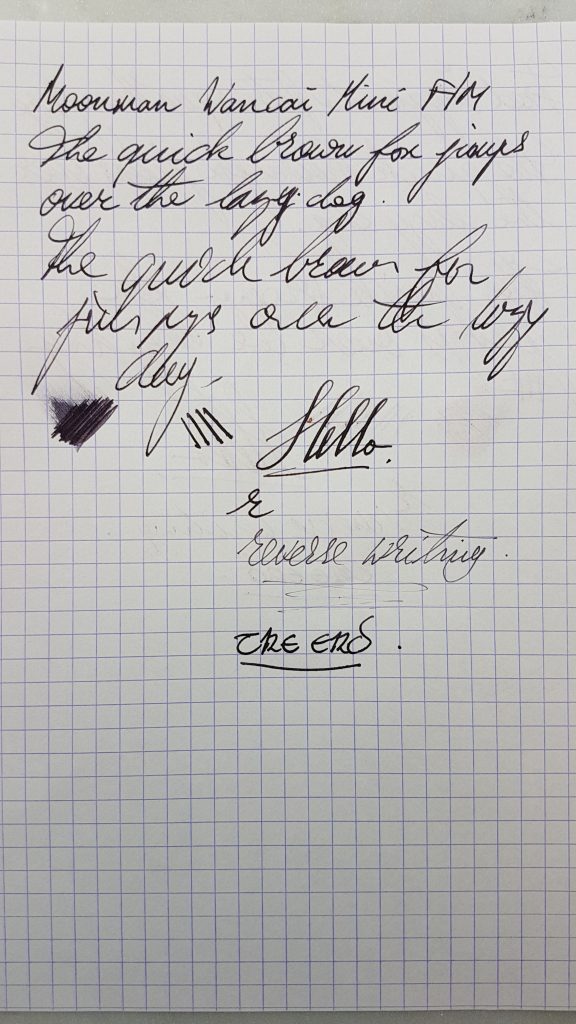 Moonman Wancai Mini F/M
The quick brown fox jumps
over the lazy dog.
The quick brown fox
jumps over the lazy
dog
Hello.
r
reverse writing.
THE END.